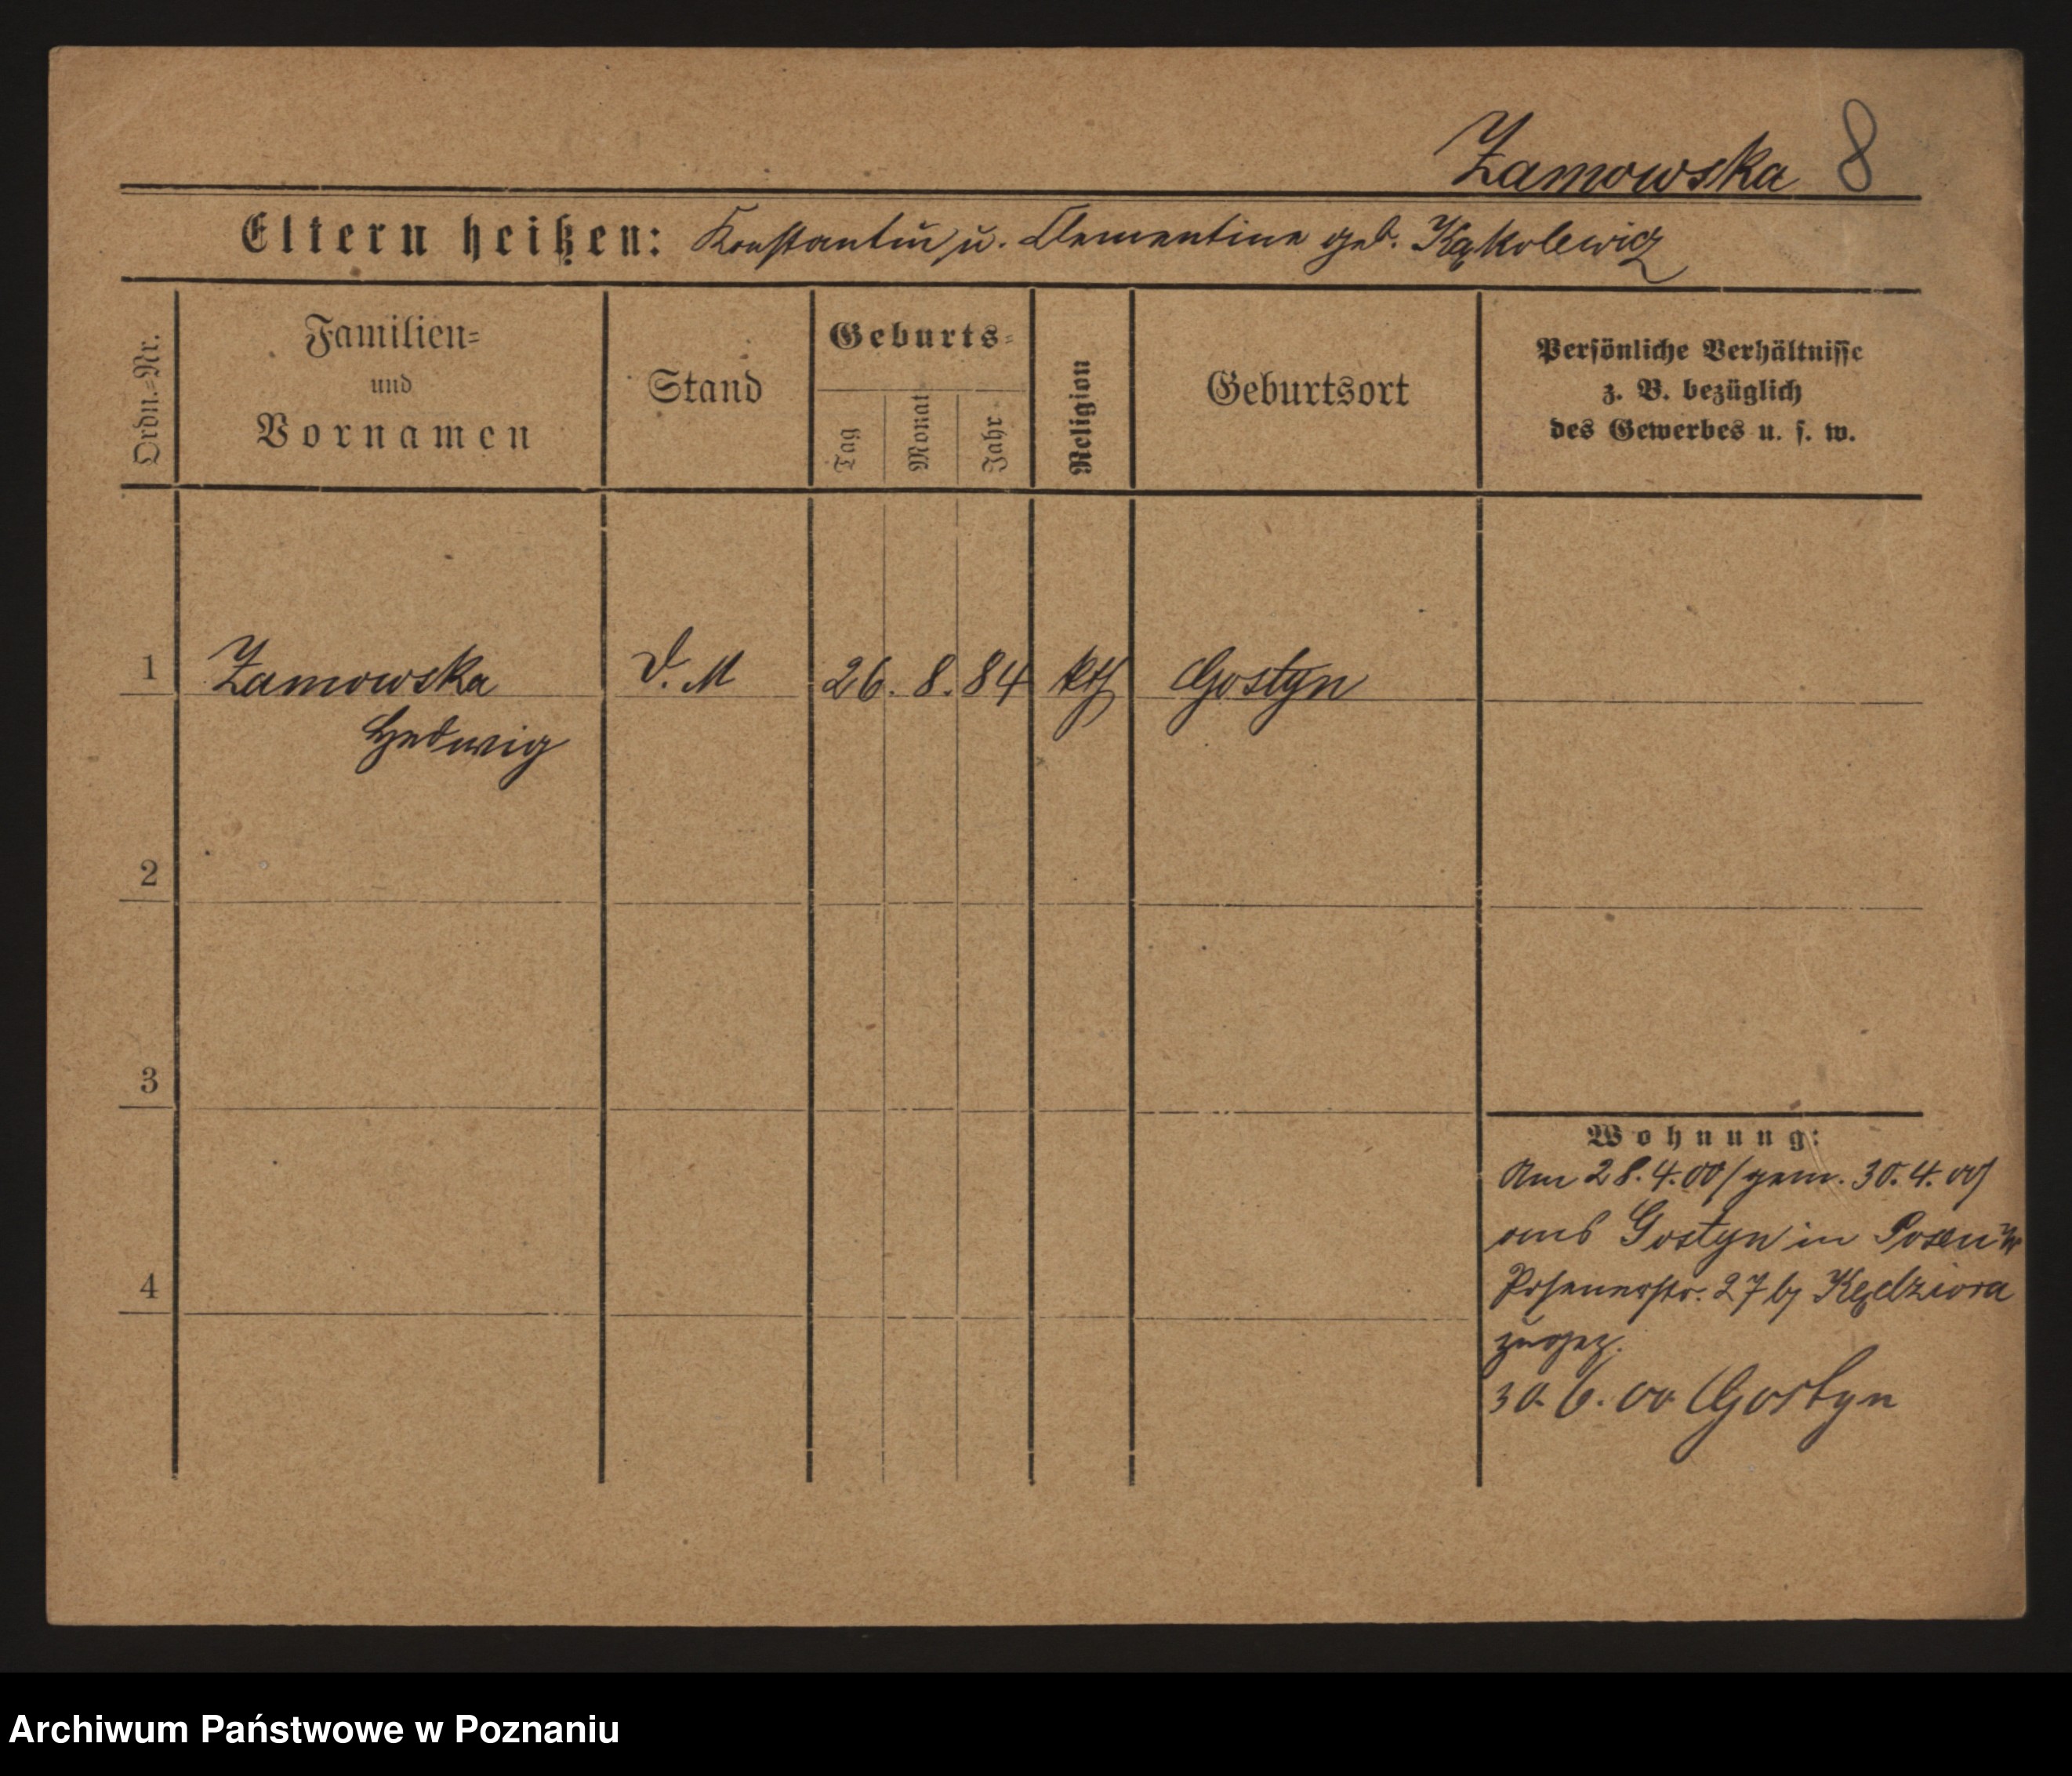 Zamowska 8
Eltern heißen: Konstantin u. Clementine geb. Kąkolewicz
Ordn.-Nr.
Familien-
und
Vornamen
Stand
Geburts-
Tag
Monat
Jahr
Religion
Geburtsort
Persönliche Verhältnisse
z. B. bezüglich
des Gewerbes u. s. w.
1 Zamowska D. M 26. 8. 84 kth Gostyn
Hedwig
2
3
Wohnung:
Am 28.4.00/gem. 30.4.00/
aus Gostyn in Posen
4
Posenerstr. 27 bj Kędziora
zugez.
30. 6. 00 Gostyn
Archiwum Państwowe w Poznaniu